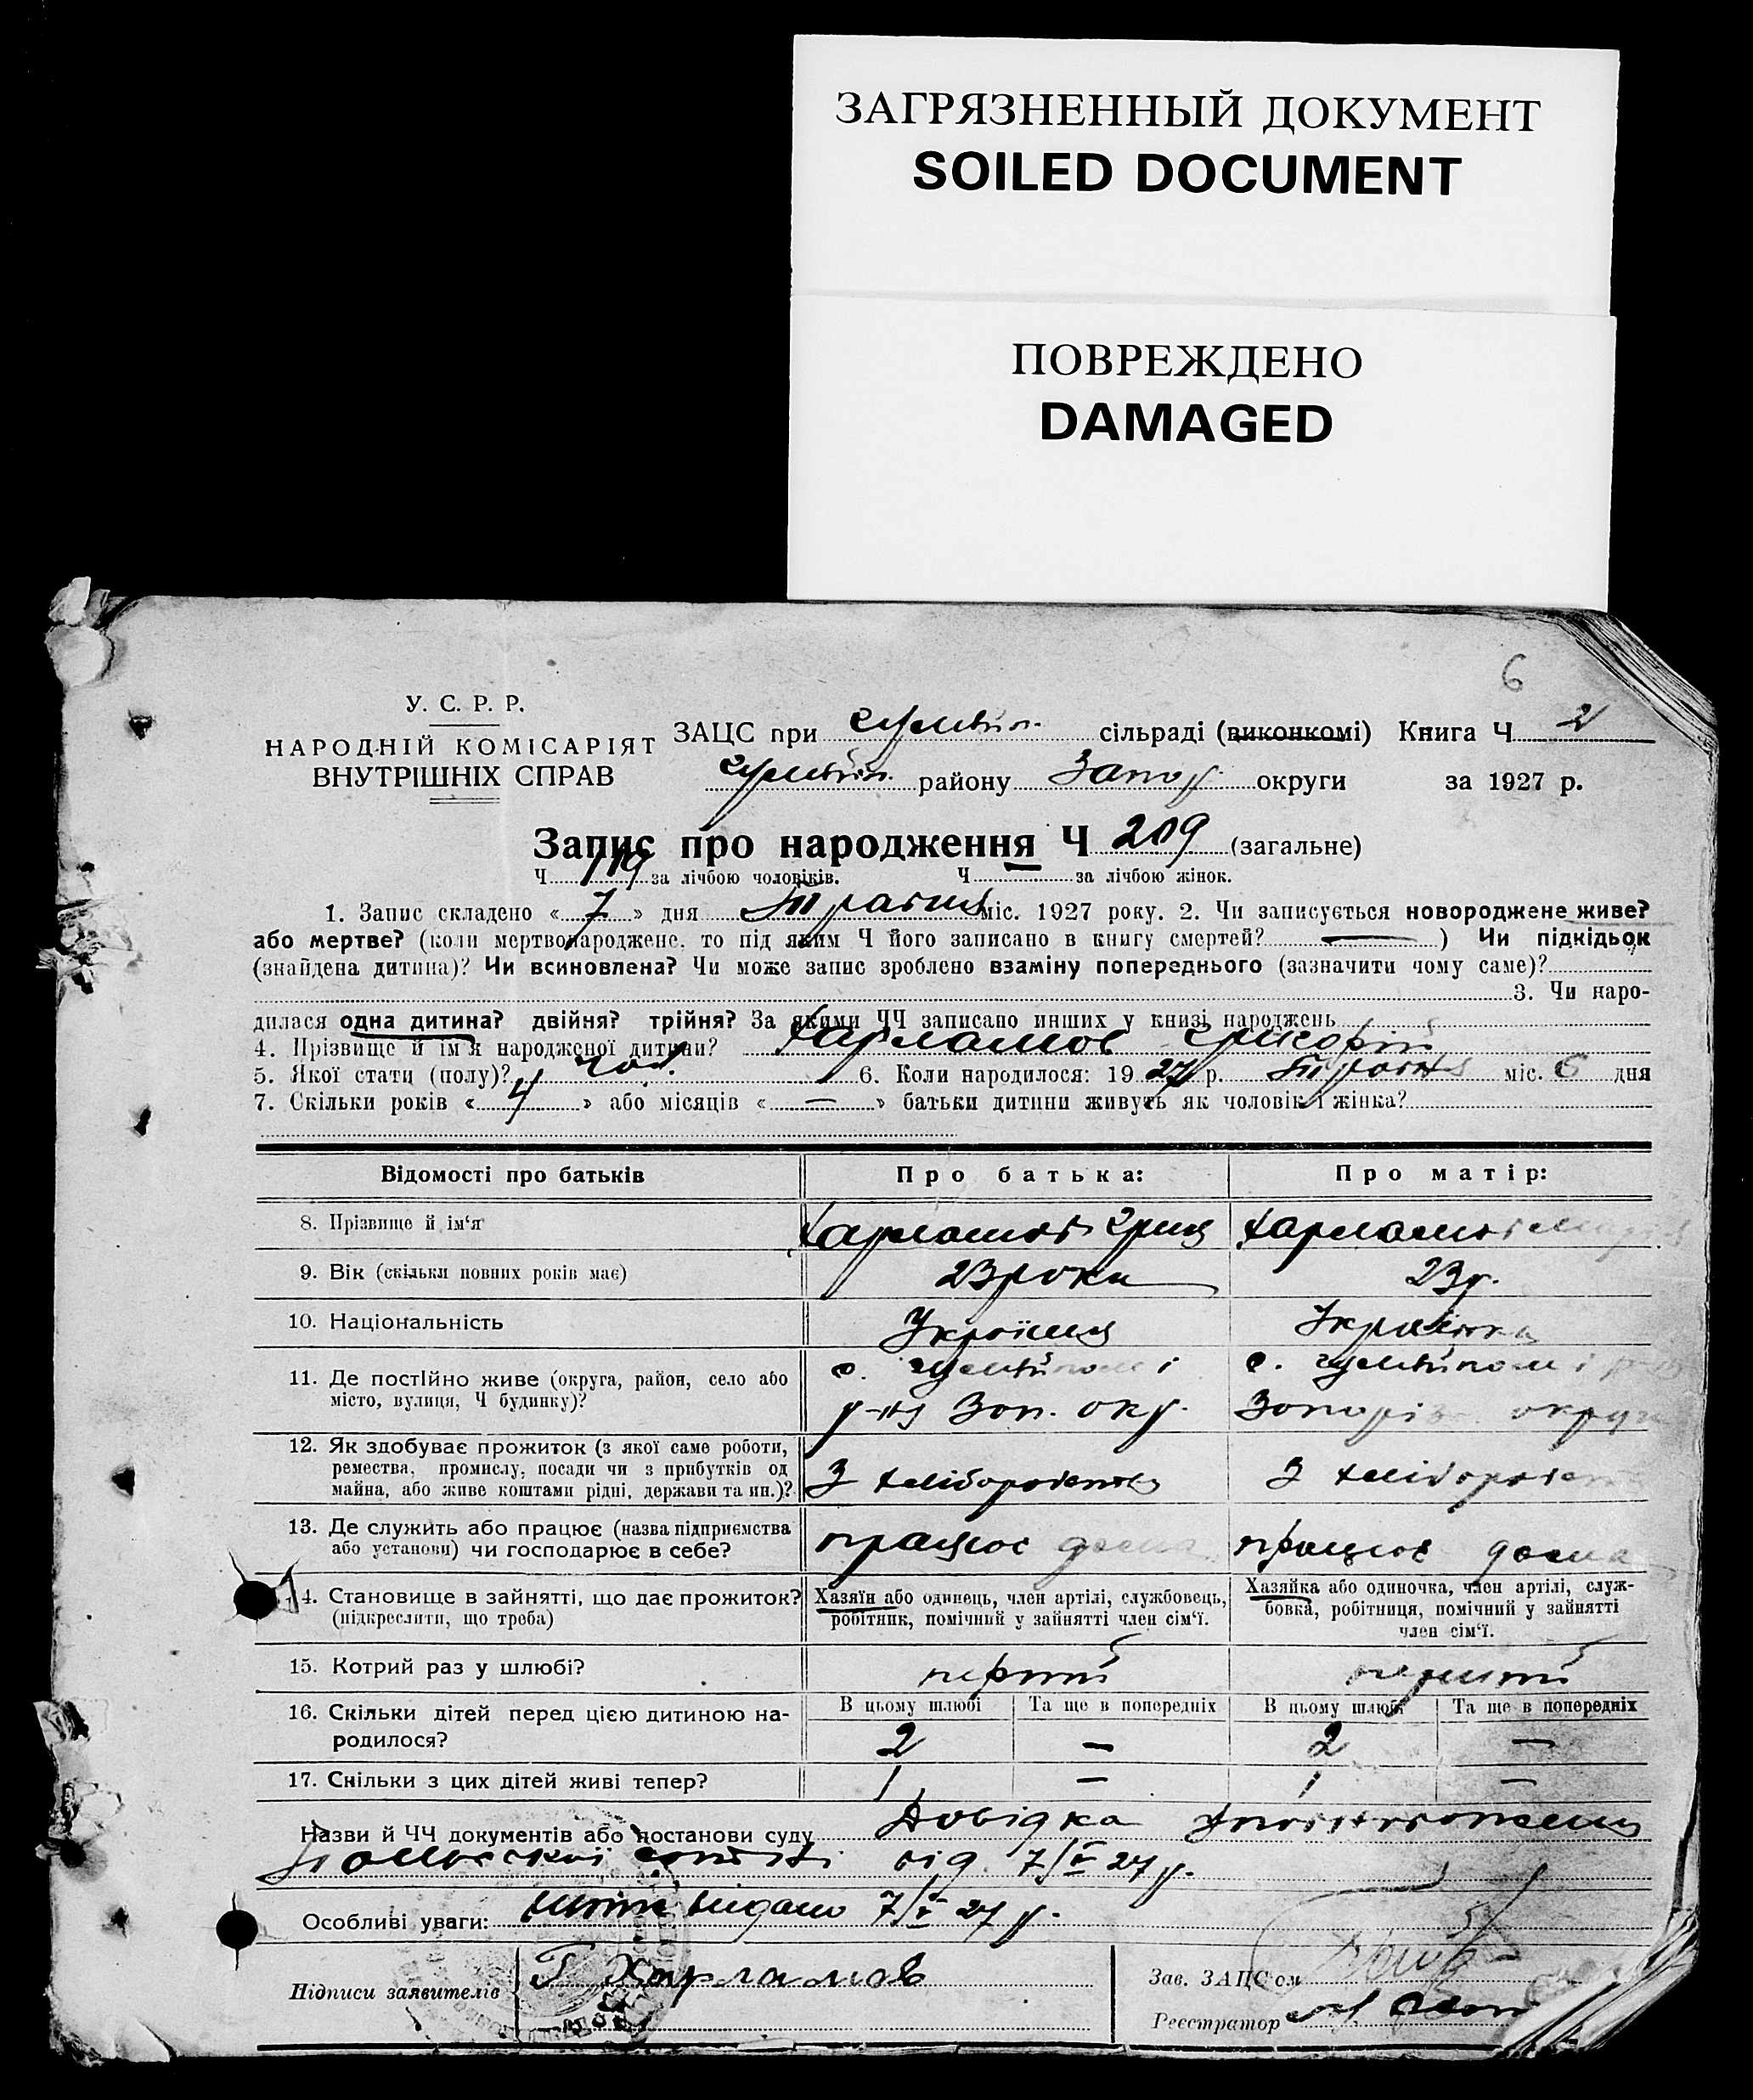 ЗАГРЯЗНЕННЫЙ ДОКУМЕНТ
SOILED DOCUMENT
ПОВРЕЖДЕНО
DAMAGED
6
У. С. Р. Р.
НАРОДНІЙ КОМІСАРІЯТ
ВНУТРІШНІХ СПРАВ
ЗАЦС при сільраді (виконкомі) Книга Ч 2
району Запор округи за 1927 р.
Запис про народження Ч 209 (загальне)
Ч 119 за лічбою чоловіків. Ч — за лічбою жінок.
1. Запис складено «7» дня Травня міс. 1927 року. 2. Чи записується новороджене живе?
або мертве? (коли мертвонароджене, то під яким Ч його записано в книгу смертей? —) Чи підкідьок
(знайдена дитина)? Чи всиновлена? Чи може запис зроблено взаміну попереднього (зазначити чому саме)?
3. Чи наро-
дилася одна дитина? двійня? трійня? За якими ЧЧ записано инших у книзі народжень
4. Прізвище й ім'я народженої дитини? Харламов Григорій
5. Якої стати (полу)? чол. 6. Коли народилося: 1927 р. Травня міс. 6 дня
7. Скільки років «4» або місяців «—» батьки дитини живуть як чоловік і жінка?
Відомості про батьків Про батька: Про матір:
8. Прізвище й ім'я Харламов Гриц Харламова Марія
9. Вік (скільки повних років має) 23 роки 23 р.
10. Національність Українець Українка
11. Де постійно живе (округа, район, село або
місто, вулиця, Ч будинку)? р-ну Зап. окр. Запоріз округи
12. Як здобуває прожиток (з якої саме роботи,
ремества, промислу, посади чи з прибутків од
майна, або живе коштами рідні, держави та ин.)? З хліборобства З хліборобств
13. Де служить або працює (назва підприємства
або установи) чи господарює в себе? працює дома працює дома
14. Становище в зайнятті, що дає прожиток?
(підкреслити, що треба)
Хазяїн або одинець, член артілі, службовець,
робітник, помічний у зайнятті член сім'ї.
Хазяйка або одиночка, член артілі, служ-
бовка, робітниця, помічний у зайнятті
член сім'ї.
15. Котрий раз у шлюбі? перший перший
16. Скільки дітей перед цією дитиною на-
родилося?
В цьому шлюбі Та ще в попередніх В цьому шлюбі Та ще в попередніх
2 — 2 —
17. Скільки з цих дітей живі тепер? 1 — 1 —
Назви й ЧЧ документів або постанови суду Довідка
від 7/V 27 р.
Особливі уваги: видано 7/V 27 р.
Підписи заявителів Г Харламов
Зав. ЗАЦС'ом
Реєстратор